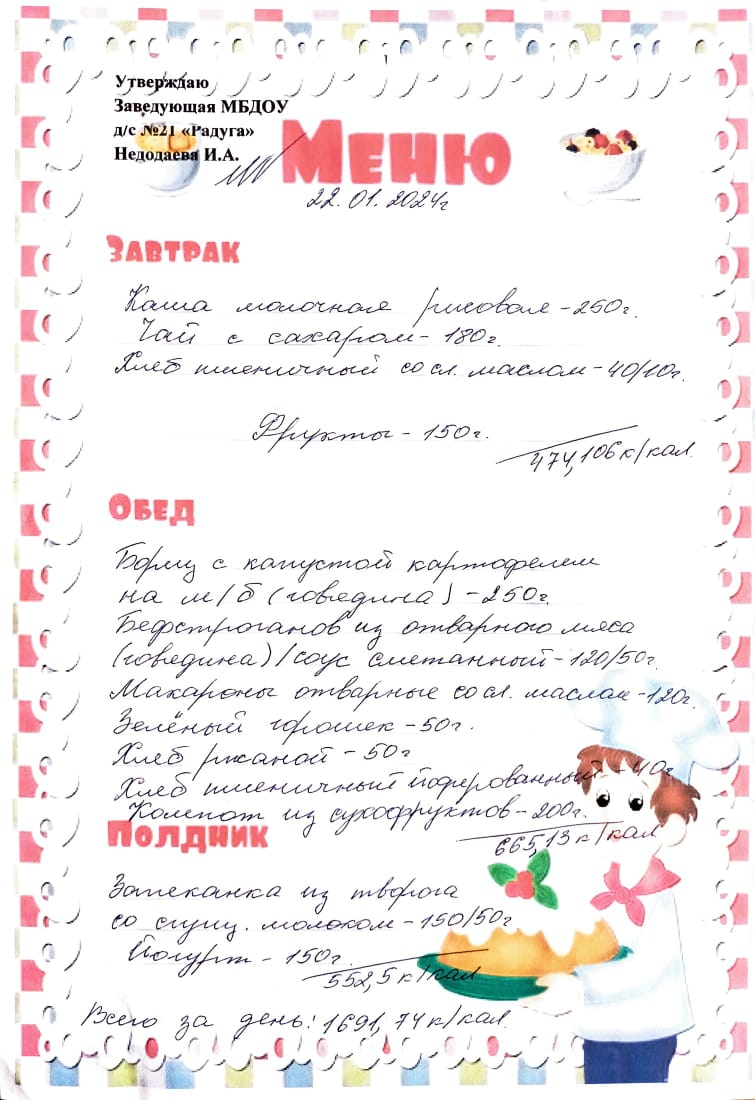 Утверждаю
Заведующая МБДОУ
д/с №21 «Радуга»
Недодаева И.А.
Меню
22.01.2024г
Завтрак
Каша молочная рисовая - 250г.
Чай с сахаром - 180г.
Хлеб пшеничный со сл. маслом - 40/10г.
Фрукты - 150г.
474,106 к/кал.
Обед
Борщ с капустой картофелем
на м/б (говядина) - 250г.
Бефстроганов из отварного мяса
(говядина)/соус сметанный - 120/50г.
Макароны отварные со сл. маслом - 120г.
Зелёный горошек - 50г.
Хлеб ржаной - 50г
Хлеб пшеничный йодерованный - 40г
Компот из сухофруктов - 200г.
665,13 к/кал
Полдник
Запеканка из творога
со сгущ. молоком - 150/50г
Йогурт - 150г.
552,5 к/кал
Всего за день: 1691,74 к/кал.